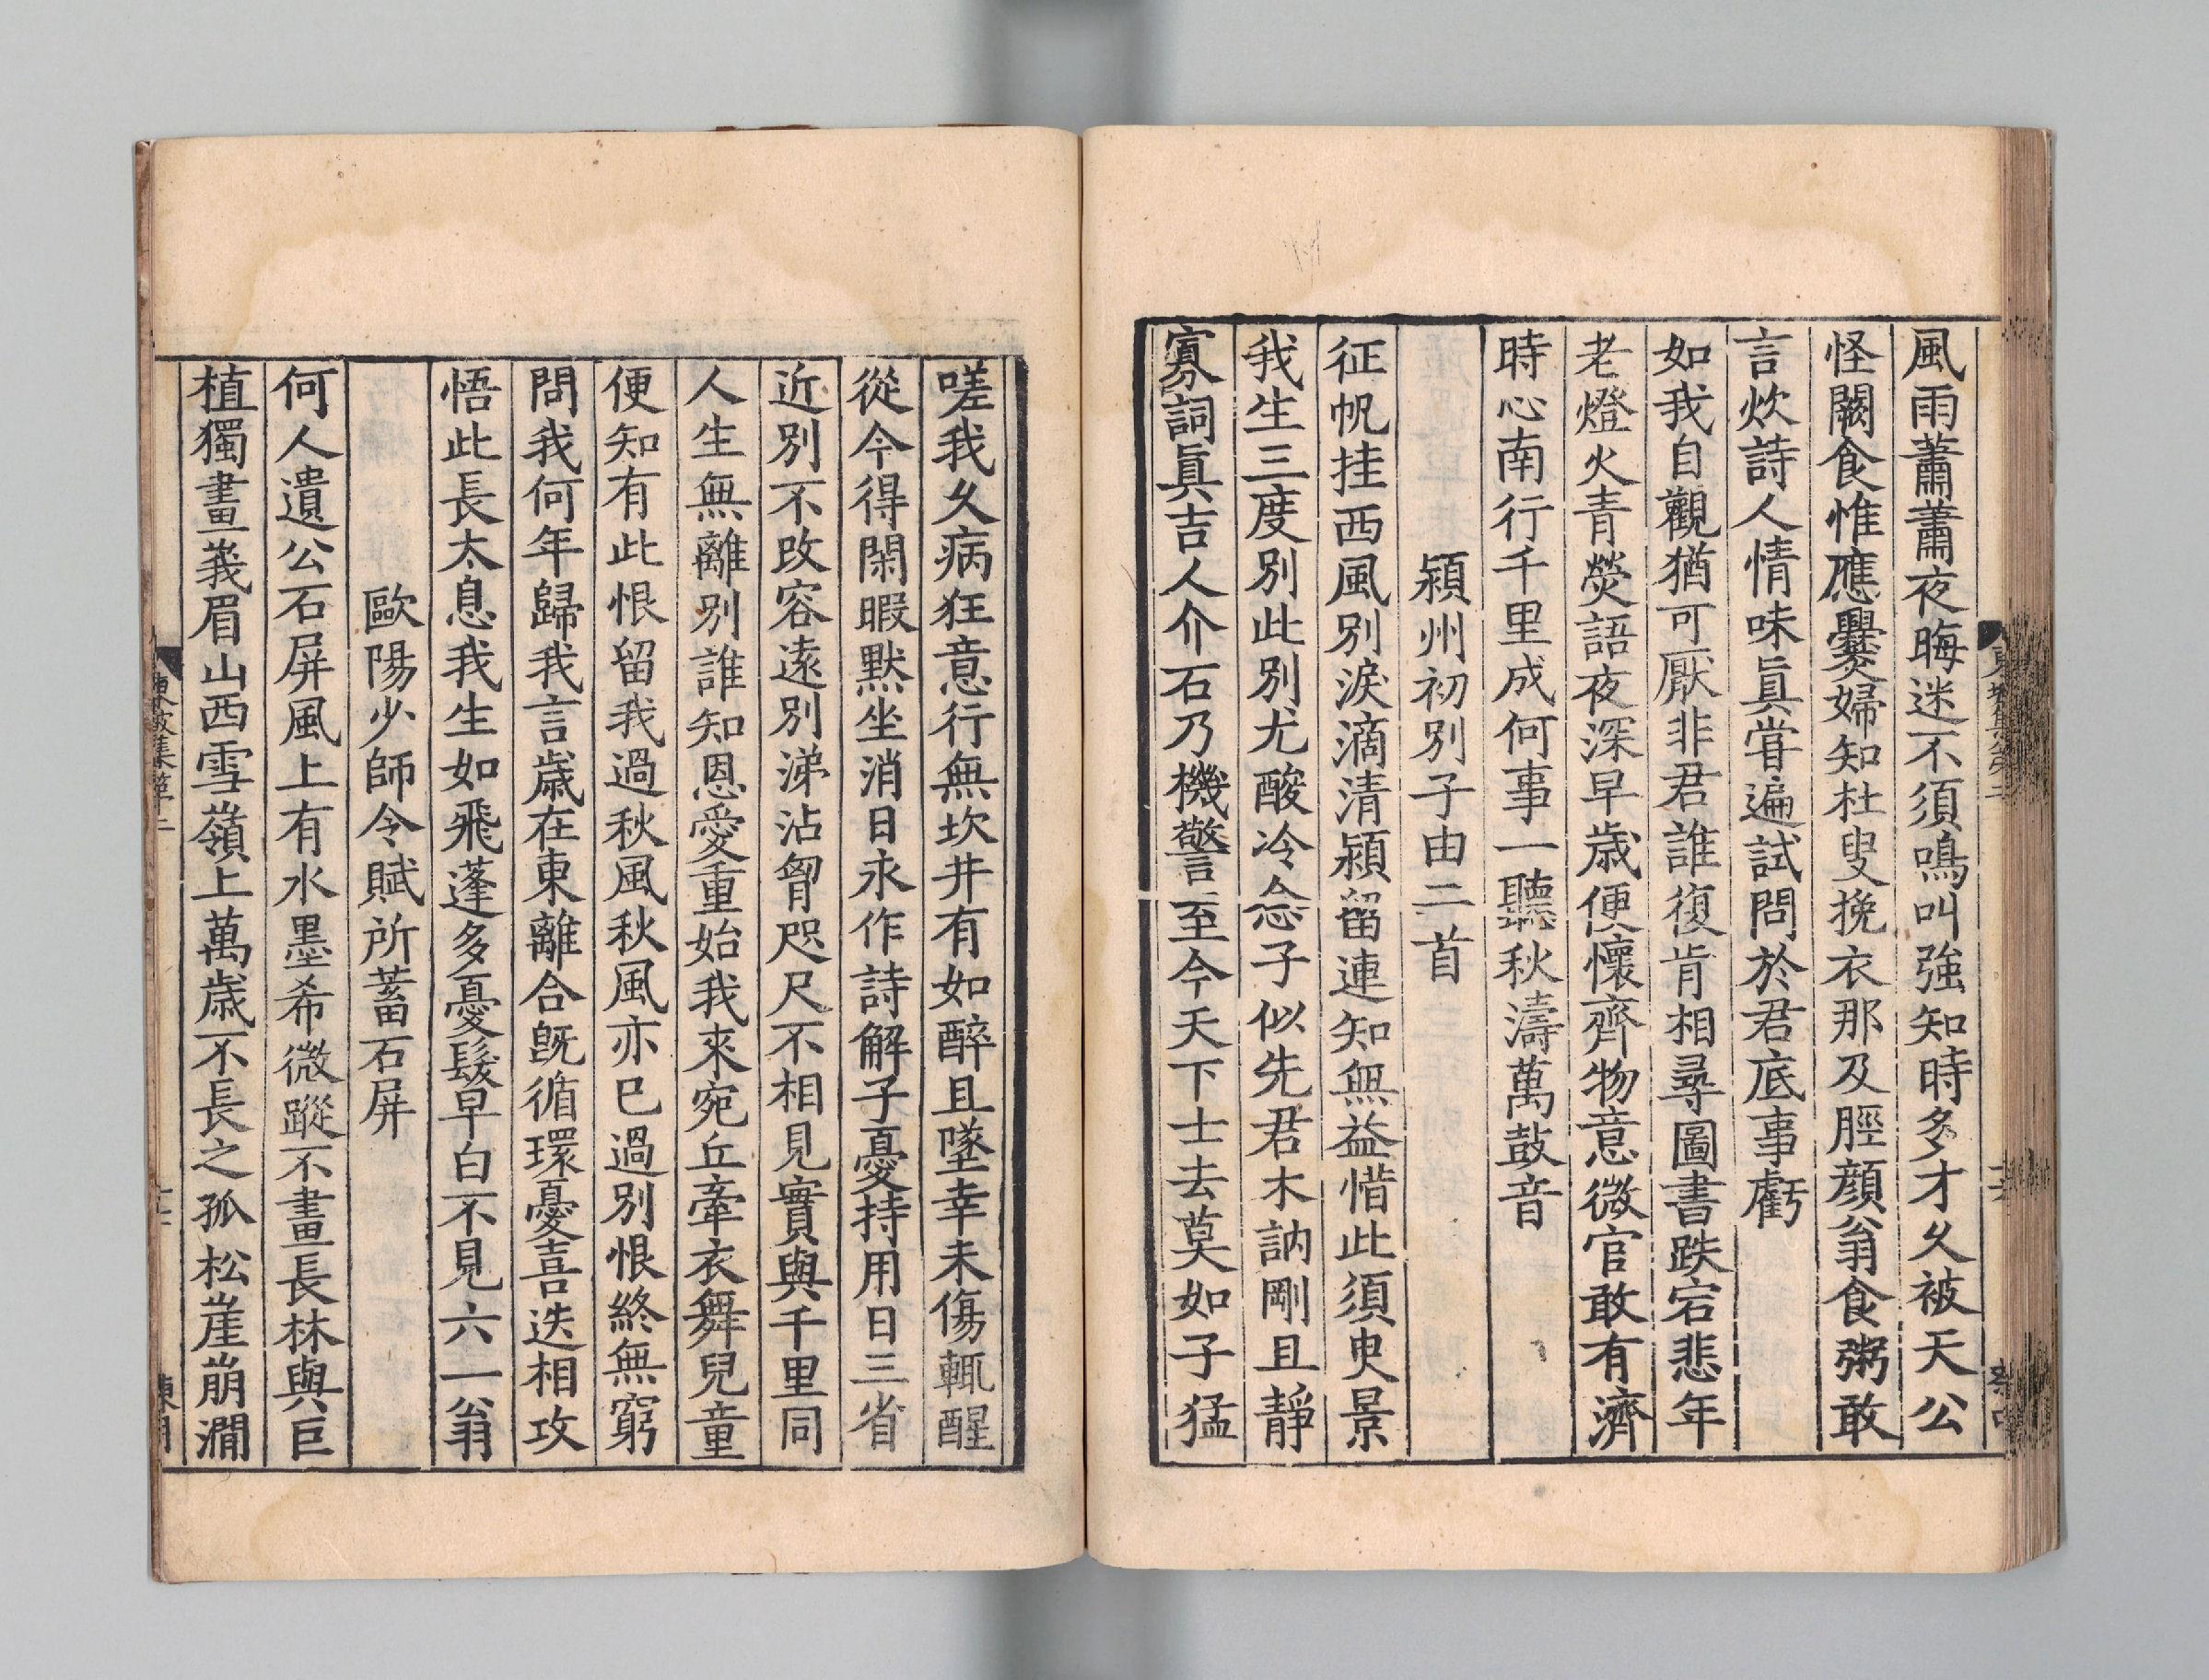 風雨蕭蕭夜晦迷不須鳴叫強知時多才久被天公
怪闕食惟應爨婦知杜叟挽衣那及脛顔翁食粥敢
言炊詩人情味眞甞遍試問於君底事虧
如我自觀猶可厭非君誰復肯相尋圖書跌宕悲年
老燈火青熒語夜深早歳便懷齊物意微官敢有濟
時心南行千里成何事一聽秋濤萬鼓音
潁州初別子由二首
征帆挂西風別淚滴清潁留連知無益惜此須臾景
我生三度別此別尤酸冷念子似先君木訥剛且靜
寡詞眞吉人介石乃機警至今天下士去莫如子猛
嗟我久病狂意行無坎井有如醉且墜幸未傷輒醒
從今得閑暇默坐消日永作詩解子憂持用日三省
近別不改容遠別涕沾胷咫尺不相見實與千里同
人生無離別誰知恩愛重始我來宛丘牽衣舞兒童
便知有此恨留我過秋風秋風亦已過別恨終無窮
問我何年歸我言歳在東離合旣循環憂喜迭相攻
悟此長太息我生如飛蓬多憂髮早白不見六一翁
歐陽少師令賦所蓄石屏
何人遺公石屏風上有水墨希微蹤不畫長林與巨
植獨畫峩眉山西雪嶺上萬歳不長之孤松崖崩澗
東坡集第二